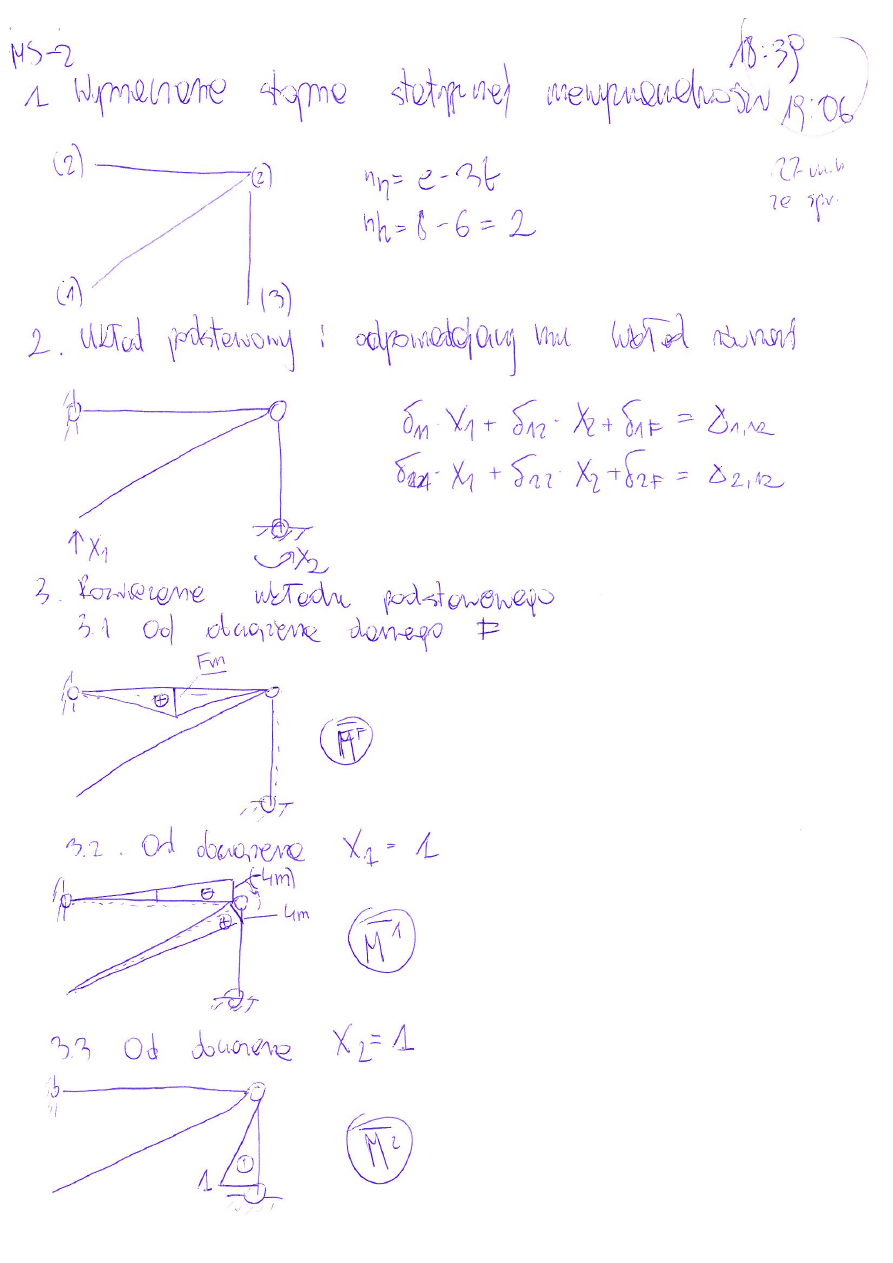 MS-2
18:39
1 Wyznaczenie stopnia statycznej niewyznaczalności
19:06
(2) (2)
n_h = e - 3t
27 min
ze spr.
n_h = 8 - 6 = 2
(1) (3)
2. Układ podstawowy i odpowiadający mu układ równań
δ₁₁ · X₁ + δ₁₂ · X₂ + δ₁F = Δ₁,
δ₂₁ · X₁ + δ₂₂ · X₂ + δ₂F = Δ₂,
↑X₁
X₂
3. Rozwiązanie układu podstawowego
3.1 Od obciążenia danego F
Fm
⊕
M̅ᶠ
3.2. Od obciążenia X₁ = 1
(-4m)
⊖
⊕
4m
M̅¹
3.3 Od obciążenia X₂ = 1
1
M̅²